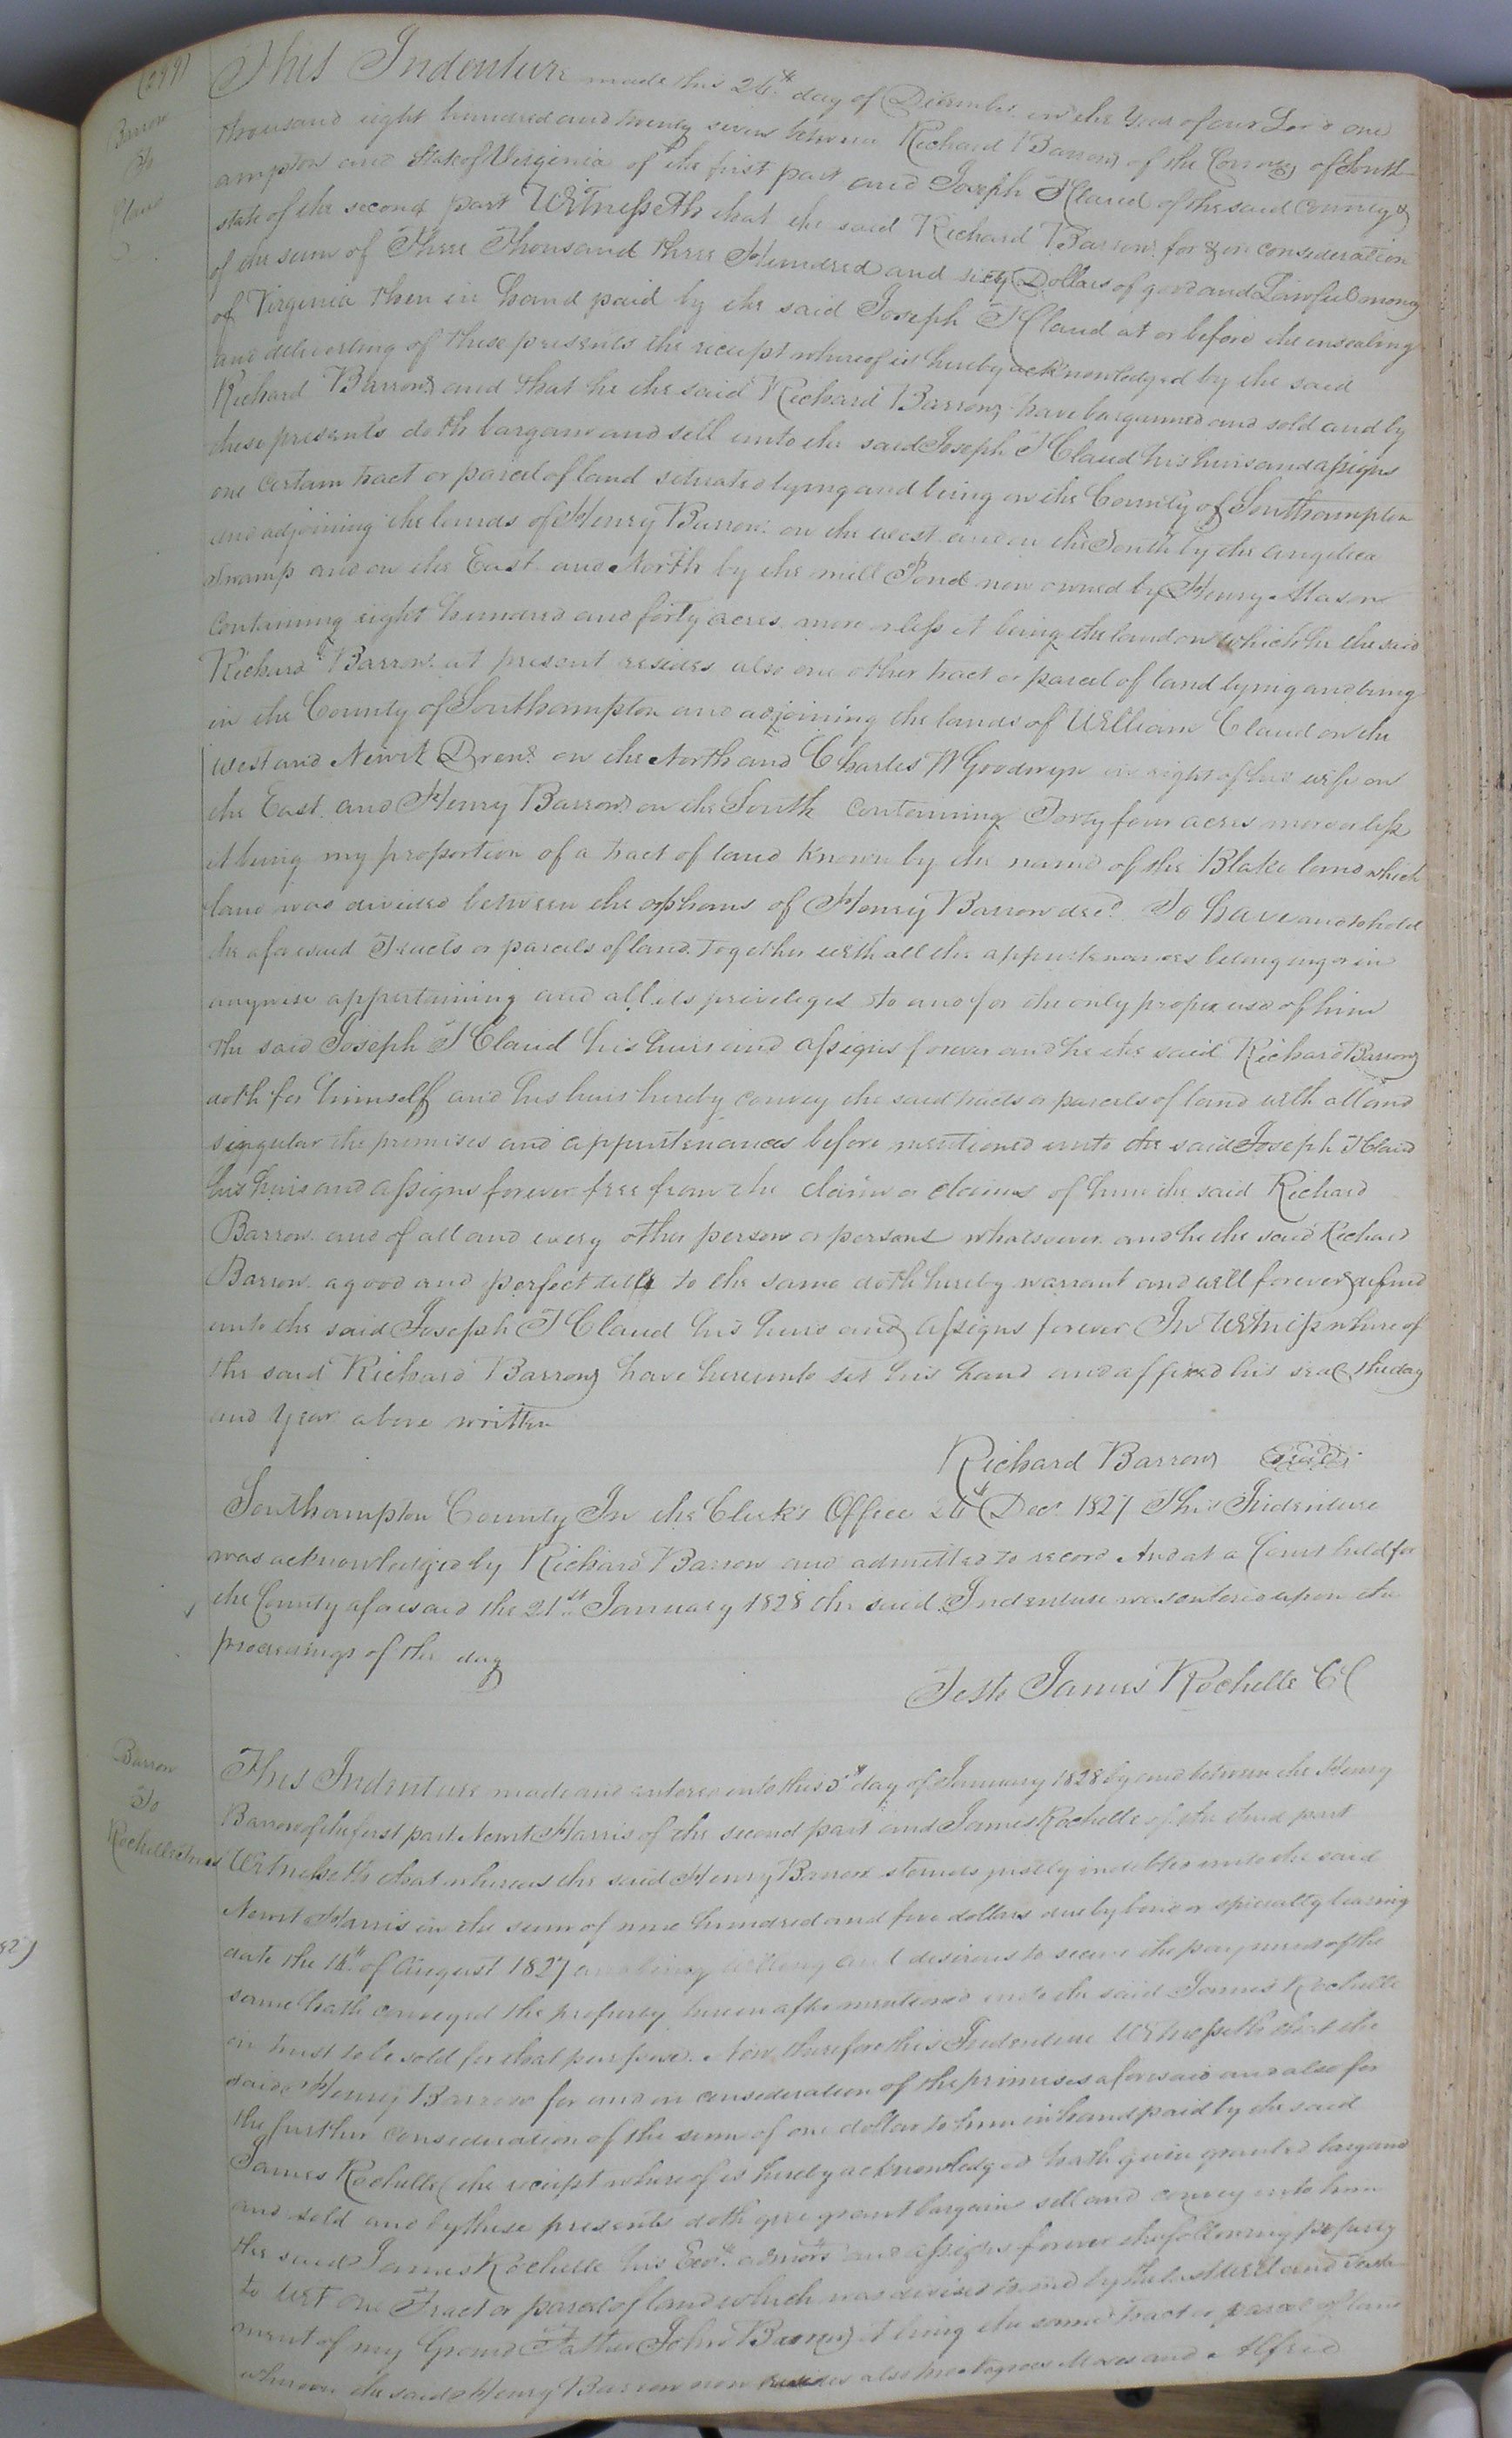 (289)
This Indenture made this 26th day of December in the Year of our Lord one
thousand eight hundred and twenty seven between Richard Barrow of the County of South
ampton and State of Virginia of the first part and Joseph T Claud of the said County &
state of the second part Witnesseth that the said Richard Barrow for & in consideration
of the sum of Three Thousand three Hundred and sixty Dollars of good and Lawful money
of Virginia then in hand paid by the said Joseph T Claud at or before the ensealing
and delivering of these presents the receipt whereof is hereby acknowledged by the said
Richard Barrow and that he the said Richard Barrow have bargained and sold and by
these presents doth bargain and sell unto the said Joseph T Claud his heirs and assigns
one certain tract or parcel of land situated lying and being in the County of Southampton
and adjoining the lands of Henry Barrow on the west and on the South by the angelica
swamp and on the East and North by the mill Pond now owned by Henry Mason
Containing eight hundred and forty acres more or less it being the land on which he the said
Richard Barrow at present resides also one other tract or parcel of land lying and being
in the County of Southampton and adjoining the lands of William Claud on the
west and Newit Drew on the North and Charles W Goodwyn in right of his wife on
the East and Henry Barrow on the South Containing Forty four acres more or less
it being my proportion of a tract of land known by the name of the Blake land which
land was divided between the orphans of Henry Barrow decd. To have and to hold
the aforesaid Tracts or parcels of land together with all the appurtenances belonging or in
anywise appertaining and all its privileges to and for the only proper use of him
the said Joseph T Claud his heirs and assigns forever and he the said Richard Barrow
doth for himself and his heirs hereby convey the said tracts or parcels of land with all and
singular the premises and appurtenances before mentioned unto the said Joseph T Claud
his heirs and assigns forever free from the claim or claims of him the said Richard
Barrow and of all and every other person or persons whatsoever and he the said Richard
Barrow a good and perfect title to the same doth hereby warrant and will forever defend
unto the said Joseph T Claud his heirs and assigns forever In Witness whereof
the said Richard Barrow have hereunto set his hand and affixed his seal the day
and year above written
Richard Barrow Seal
Southampton County In the Clerk's Office 26th Decr 1827 This Indenture
was acknowledged by Richard Barrow and admitted to record And at a Court held for
the County aforesaid the 21st January 1828 the said Indenture was entered upon the
proceedings of the day
Teste James Rochelle CC
Barrow
To
Claud
Barrow
To
Rochelle Trus
This Indenture made and entered into this 5th day of January 1828 by and between the Henry
Barrow of the first part Newit Harris of the second part and James Rochelle of the third part
Witnesseth that whereas the said Henry Barrow stands justly indebted unto the said
Newit Harris in the sum of nine hundred and five dollars due by bond or specialty bearing
date the 14th of August 1827 and being willing and desirous to secure the payment of the
same hath conveyed the property herein after mentioned unto the said James Rochelle
in trust to be sold for that purpose. Now therefore this Indenture Witnesseth that the
said Henry Barrow for and in consideration of the primises aforesaid and also for
the further consideration of the sum of one dollar to him in hand paid by the said
James Rochelle (the receipt whereof is hereby acknowledged hath given granted bargained
and sold and by these presents doth give grant bargain sell and convey unto him
the said James Rochelle his Exors. admors and assigns forever the following property
to wit one Tract or parcel of land which was devised to me by the last Will and Testa
ment of my Grand Father John Barrow it being the same tract or parcel of land
whereon the said Henry Barrow now resides also two Negroes Moses and Alfred